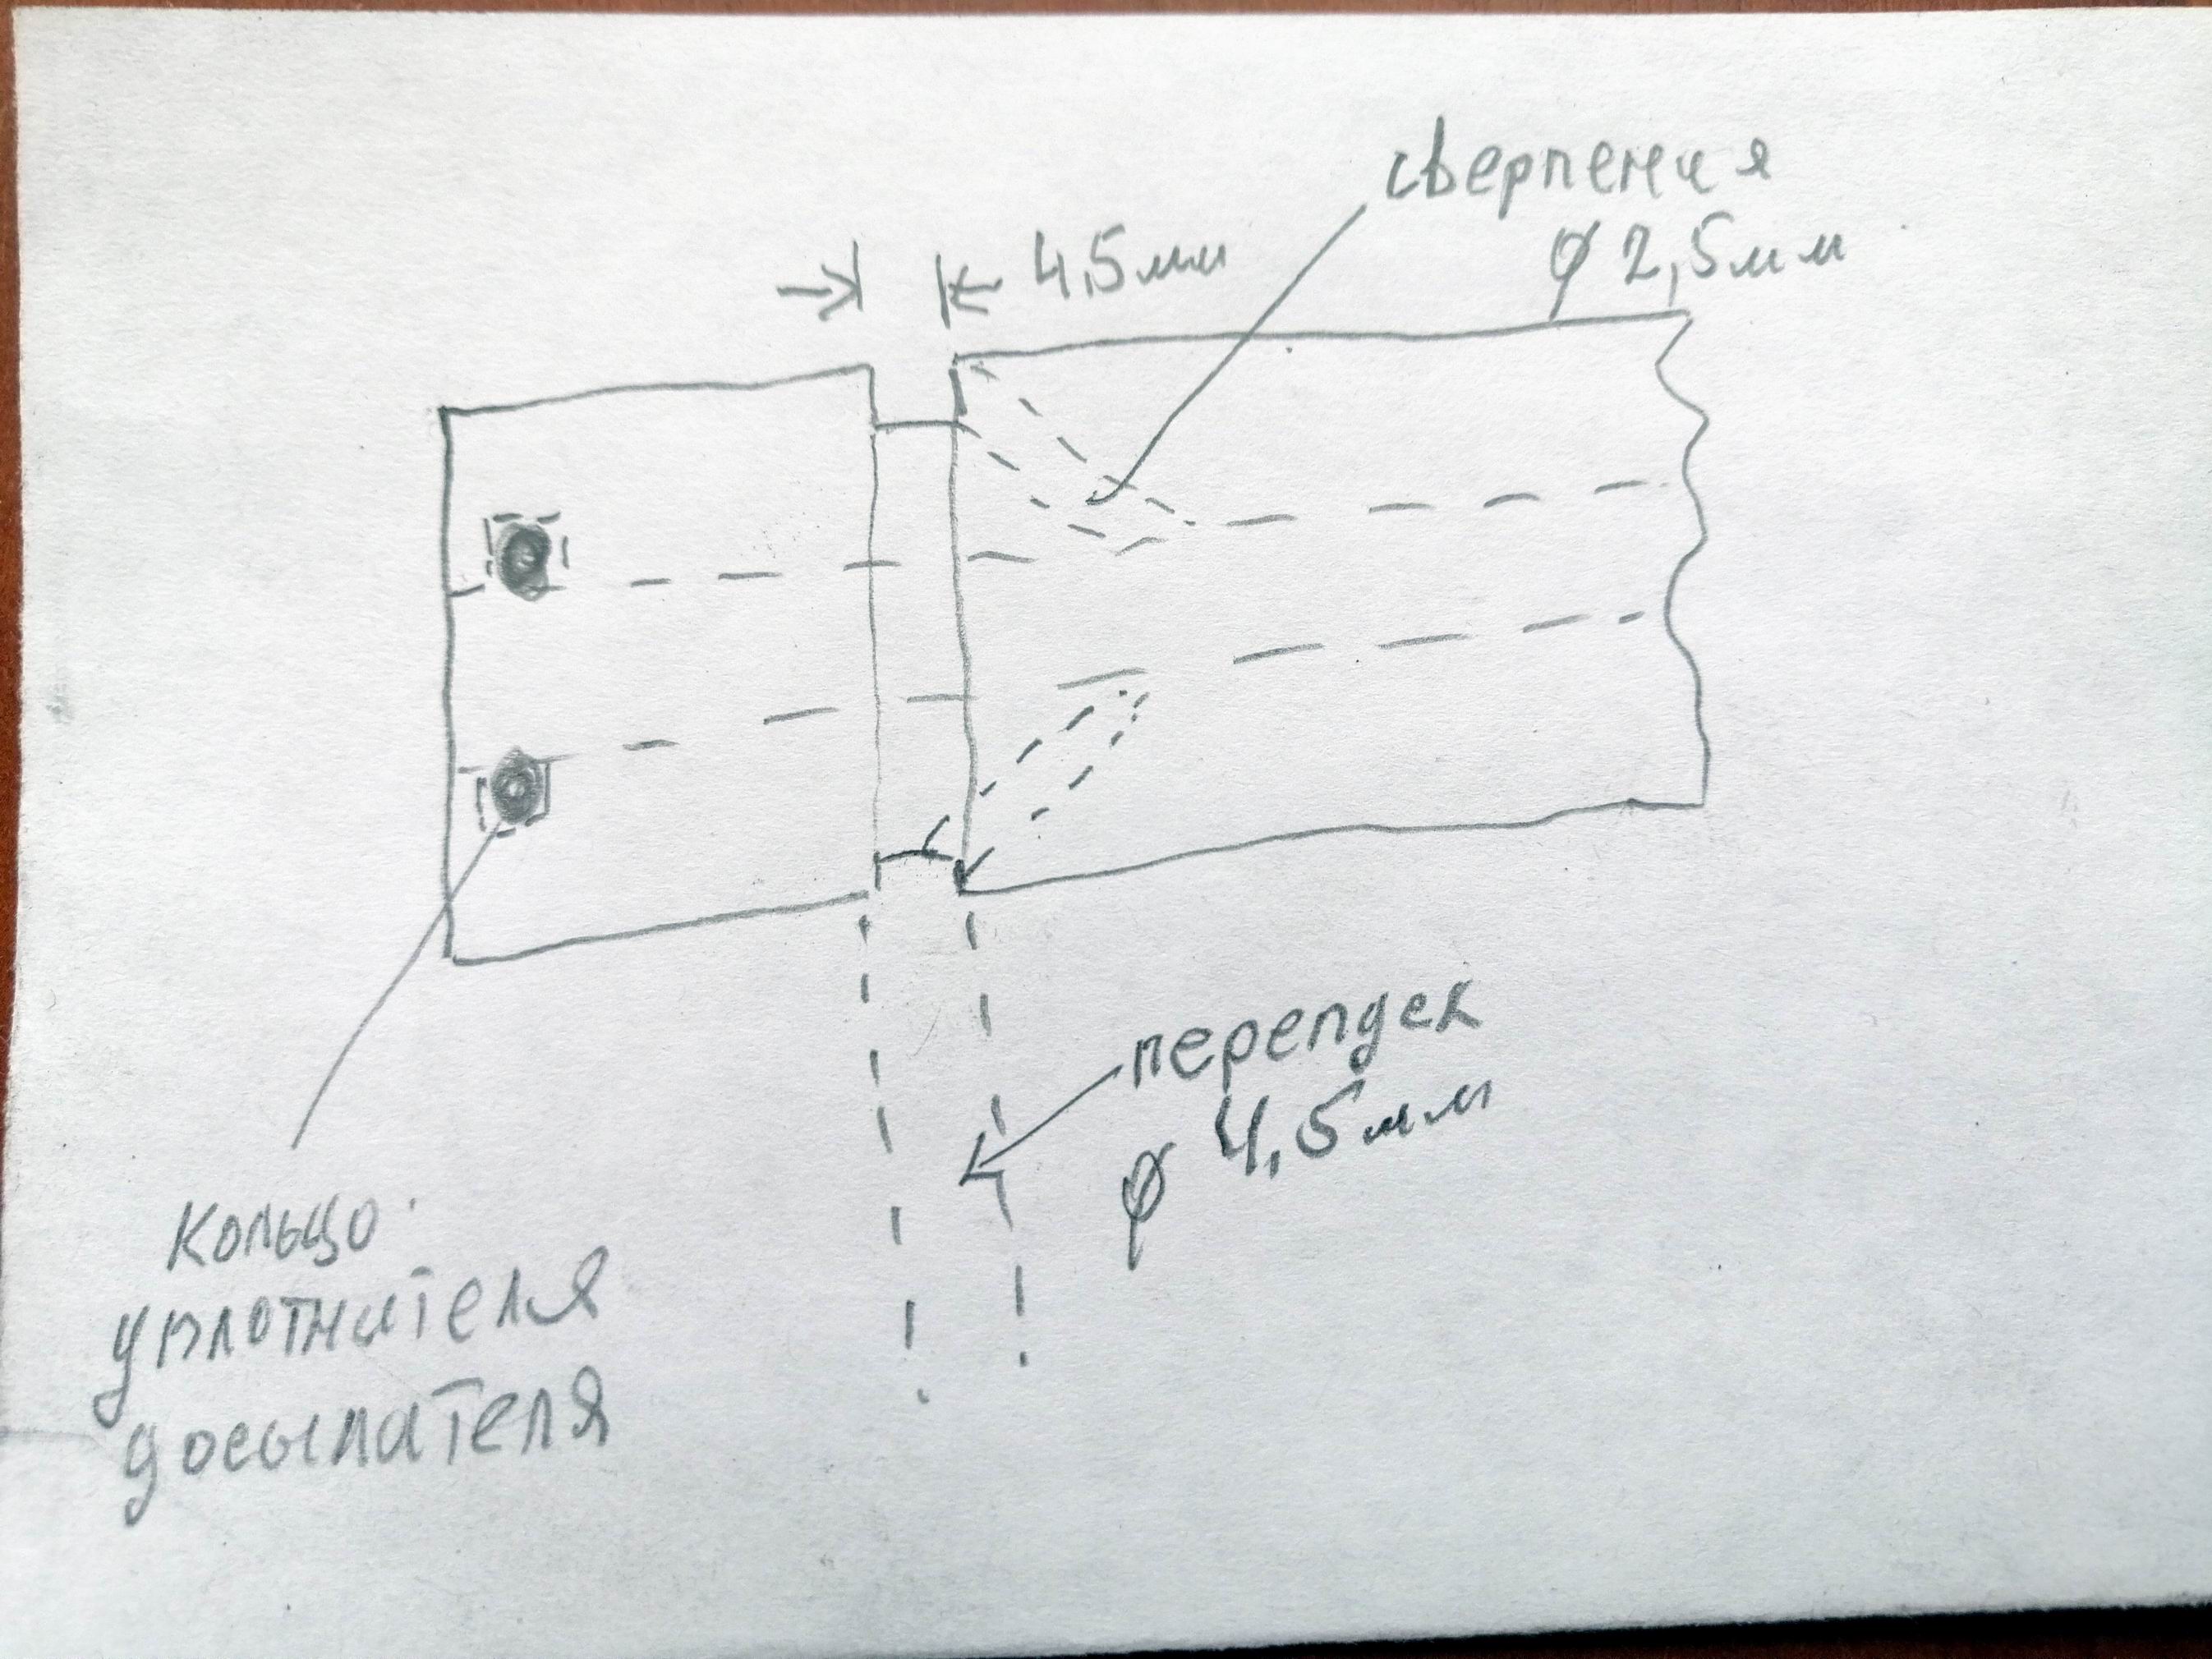 сверления
φ 2,5мм
4,5мм
перепдек
φ 4,5мм
кольцо
уплотнителя
досылателя